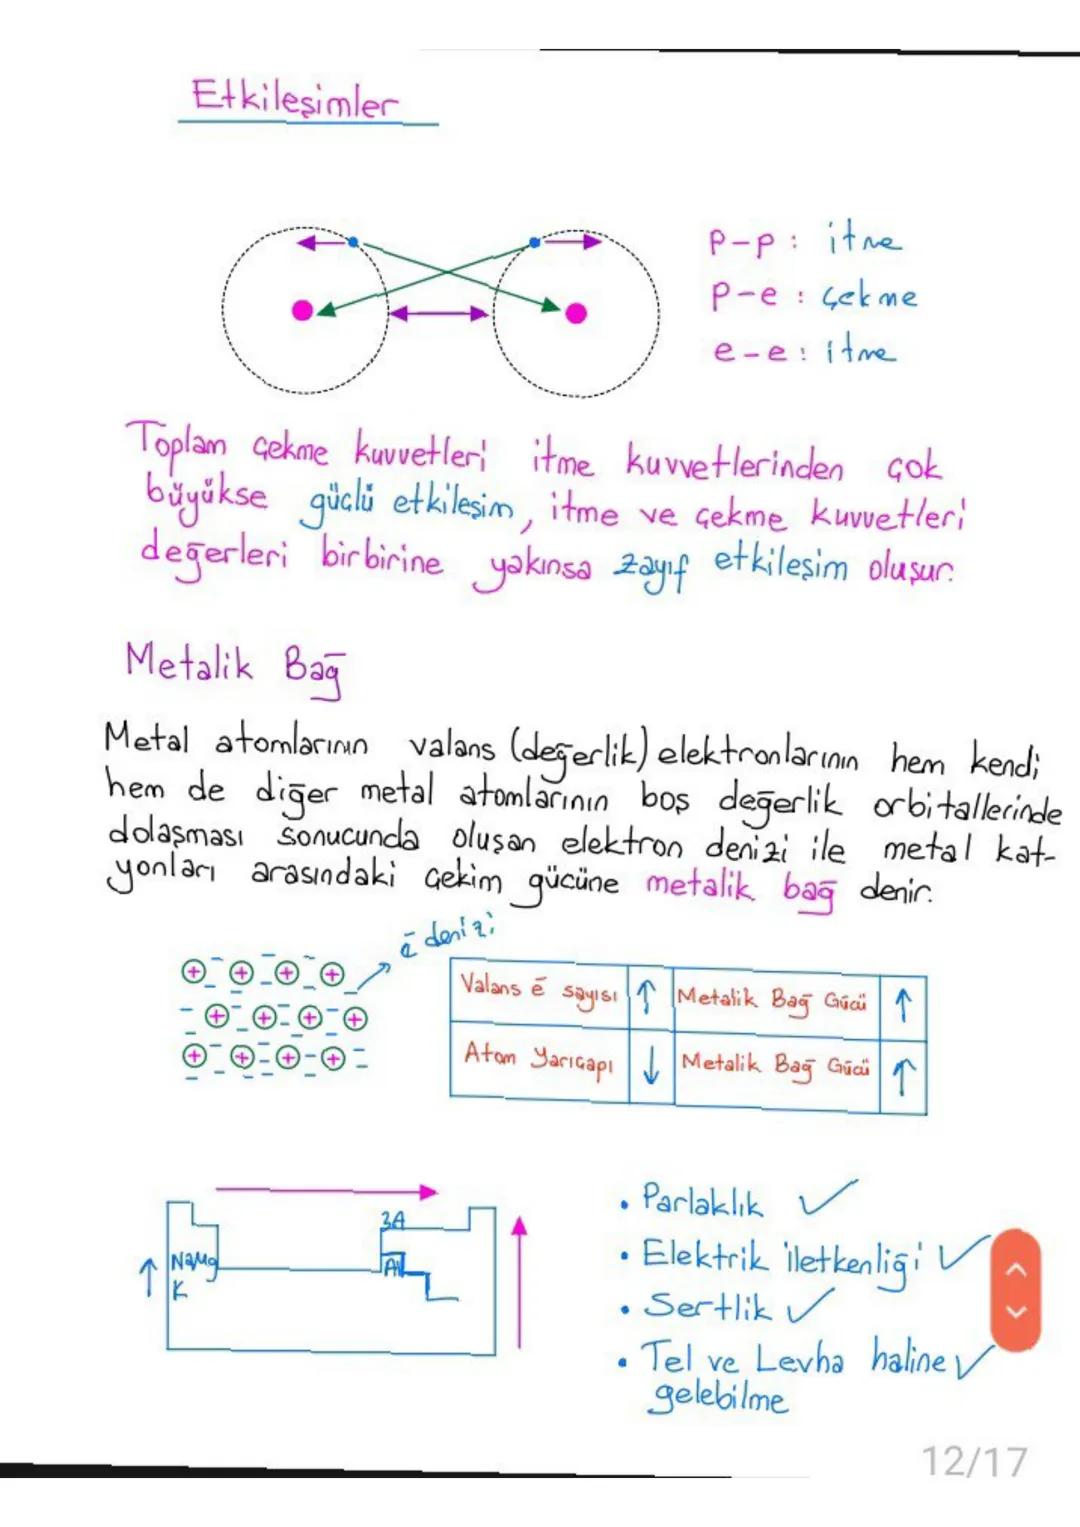 Etkileşimler
p-p: itme
p-e: çekme
e-e: itme
Toplam çekme kuvvetleri itme kuvvetlerinden çok
büyükse güçlü etkileşim, itme ve çekme kuvvetleri
değerleri birbirine yakınsa zayıf etkileşim oluşur.
Metalik Bağ
Metal atomlarının valans (değerlik) elektronlarının hem kendi
hem de diğer metal atomlarının boş değerlik orbitallerinde
dolaşması sonucunda oluşan elektron denizi ile metal kat-
yonları arasındaki çekim gücüne metalik bağ denir.
ē denizi
Valans ē sayısı ↑ Metalik Bağ Gücü ↑
Atom Yarıçapı ↓ Metalik Bağ Gücü ↑
3A
Na Mg Al
K
• Parlaklık ✓
• Elektrik iletkenliği ✓
• Sertlik ✓
• Tel ve Levha haline ✓
gelebilme
12/17